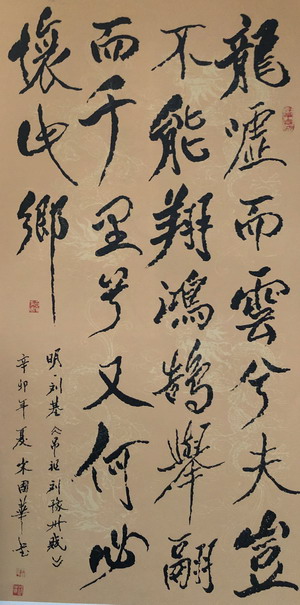 龍嘘而雲兮夫豈
不能翔鴻鵠舉翮
而千里兮又何必
懷此鄉
明刘基《吊祖刘豫州賦》
辛卯年夏宋國華書